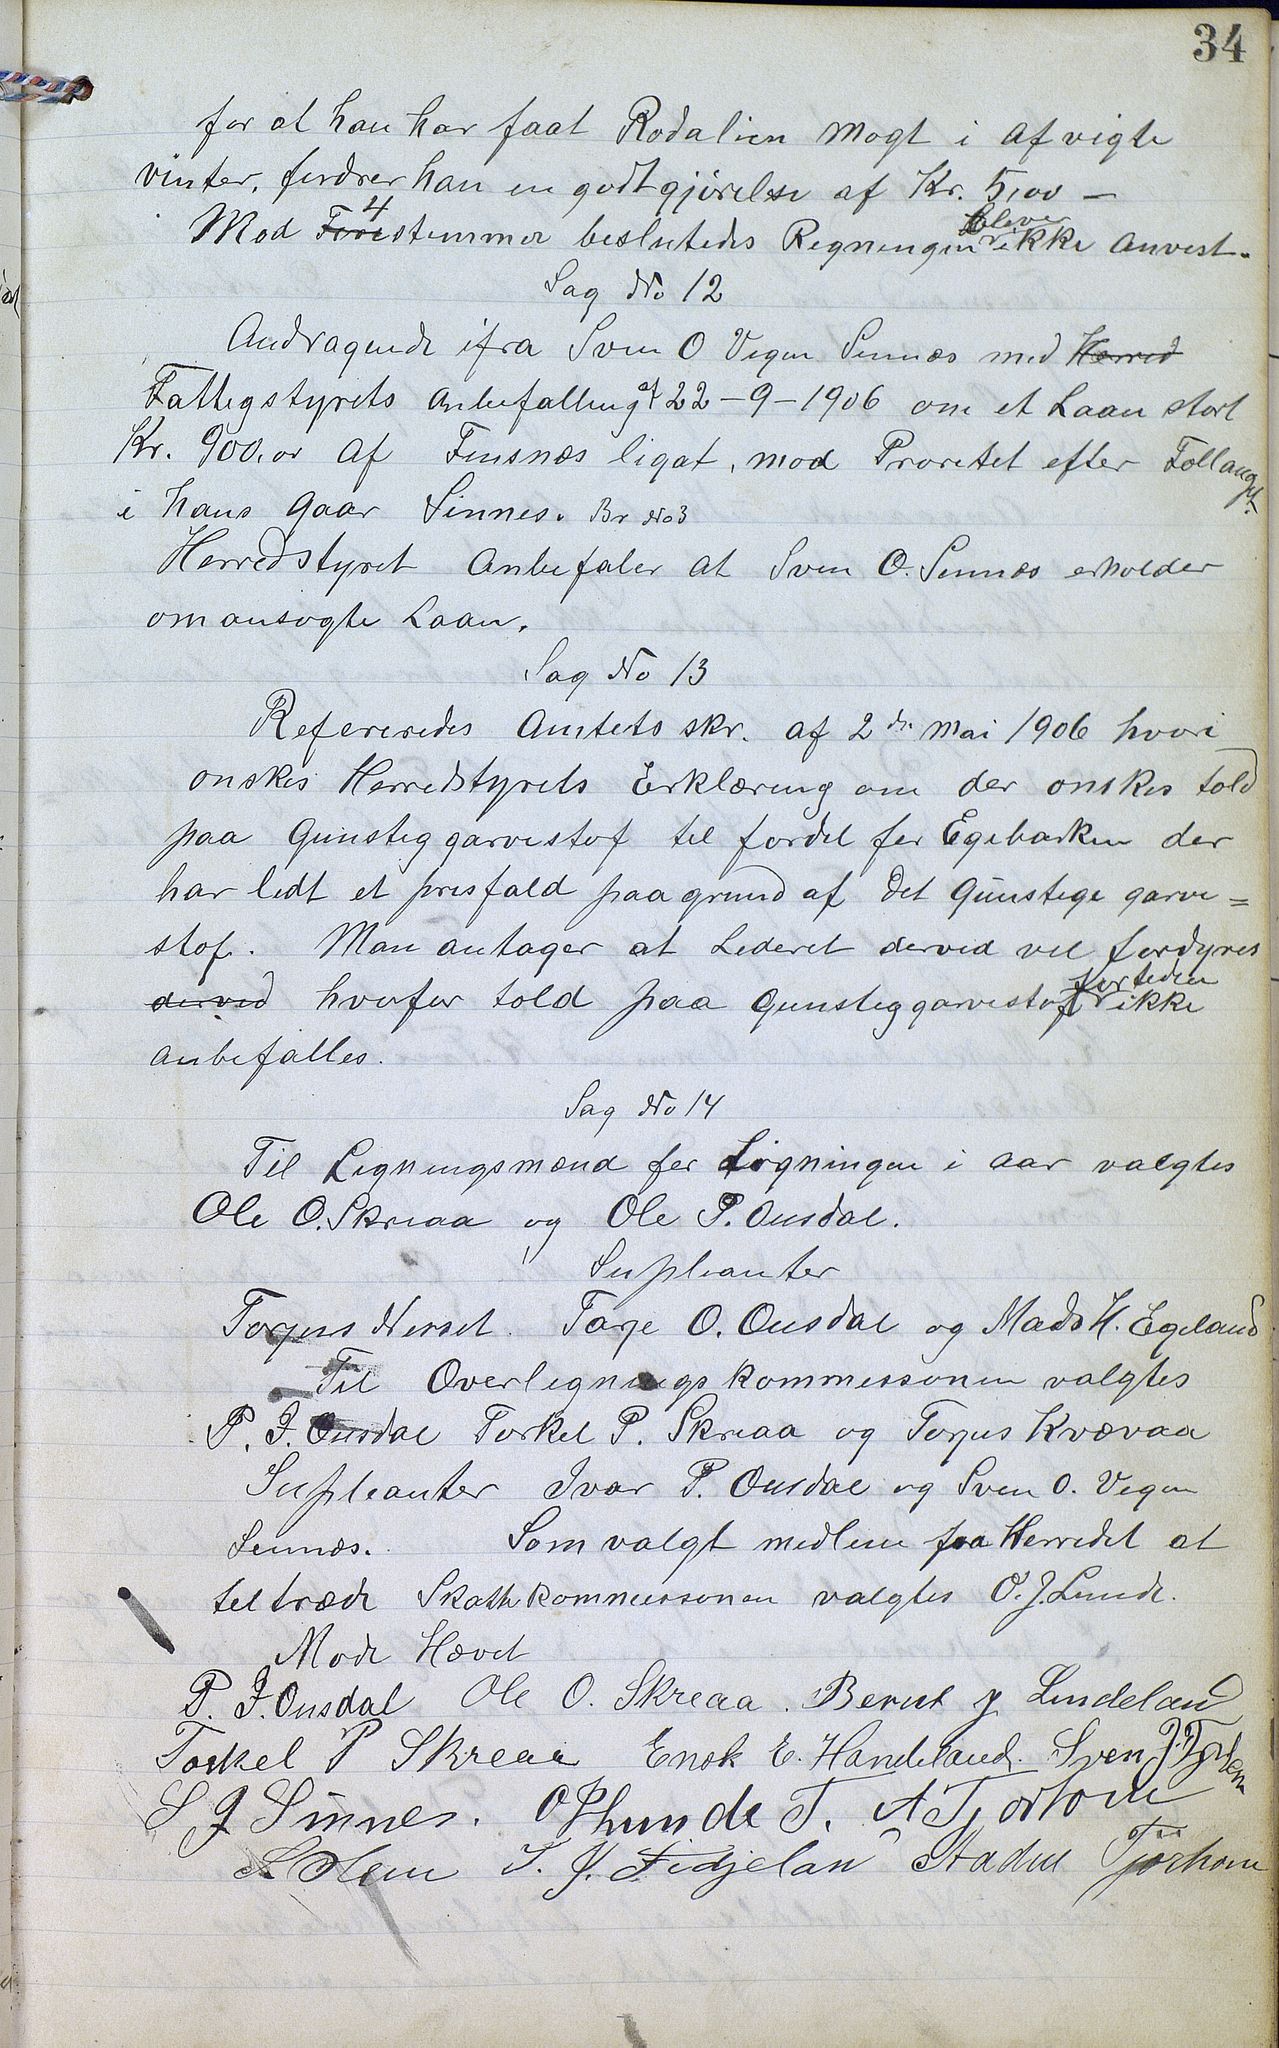 34
for at han har faat Rodalien Mogt i afvigte
vinter, fordrer han en godtgjörelse af Kr. 5,00 —
Mod 4 stemmer beslutedes Regningen bliver ikke anvist.
Sag No 12
Andragende ifra Sven O Vegen Sinnes med Herred
Fattigstyrets anbefalling af 22-9-1906 om et Laan stort
Kr. 900,00 af Finsnes ligat, mod Proretet efter
i hans Gaar Sinnes. Br No 3
Herredstyret Anbefaler at Sven O. Sinnes erholder
omansogte Laan.
Sag No 13
Refereredes Amtets skr. af 2de Mai 1906 hvori
onskes Herredstyrets Erklæring om der onskes told
paa Gunstig garvestof til fordel for Egebarken der
har lidt et prisfald paa grund af det Gunstige garve=
stof. Man antager at Lederet derved vil fordyres
derved hvorfor told paa Gunstig garvestof fortiden ikke
anbefalles.
Sag No 14
Til Ligningsmænd for Ligningen i aar valgtes
Ole O. Skreaa og Ole P. Ousdal.
Supleanter
Torjus Nerset. Tarje O. Ousdal og Mads H. Egeland
Til Overligningskommissonen valgtes
P. J. Ousdal Torkel P. Skreaa og Torjus Kvævaa
Supleanter Ivar P. Ousdal og Sven O. Vegen
Sinnes. Som valgt medlem fra Herredet at
teltræde Skattekommissonen valgtes O. J. Lunde.
Mode Hævet
P. J. Ousdal Ole O. Skreaa. Bernt J Lindeland
Torkel P Skreaa Enok E. Handeland. Sven J.
S J Sinnes. O P Lunde T. A Tjorhom
T. J. Fidjelan Stadne Tjorhom